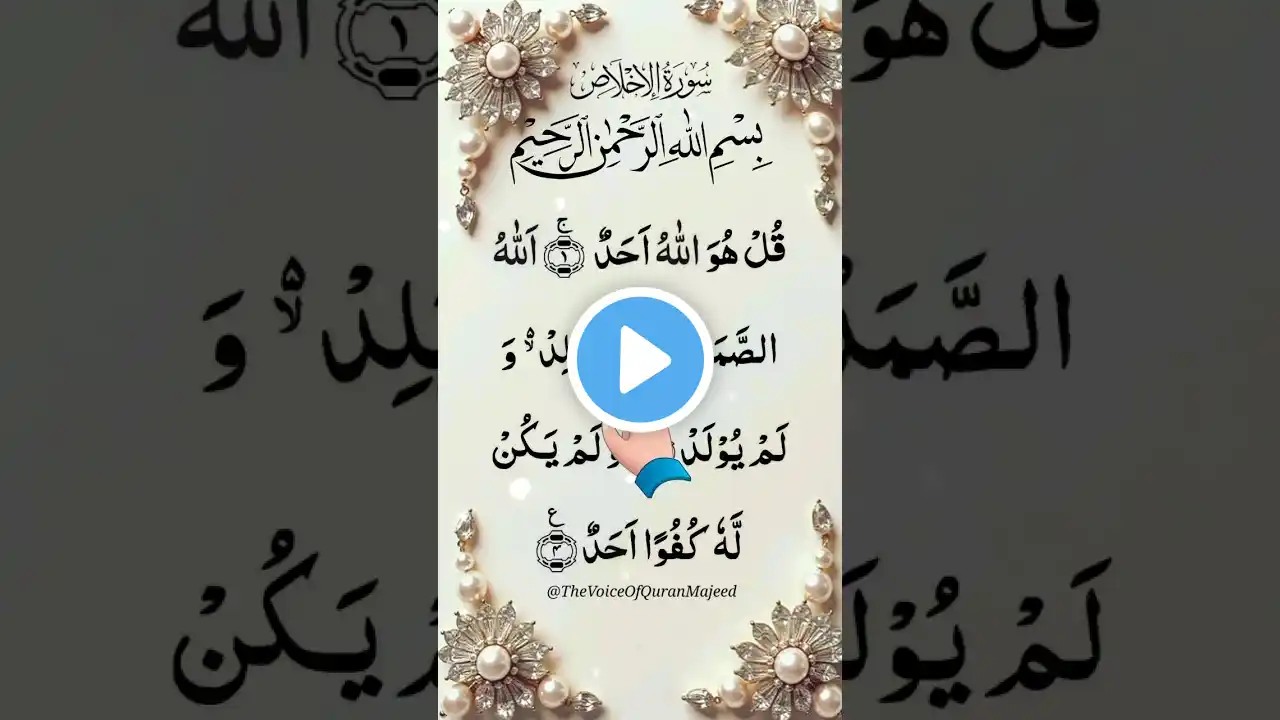 سُورَةُ الْاِخْلَاصِ
بِسْمِ اللّٰهِ الرَّحْمٰنِ الرَّحِيْمِ
قُلْ هُوَ اللّٰهُ اَحَدٌ ۚ ۝١ اَللّٰهُ
الصَّمَ لِدْ ۙ۬ وَ
لَمْ يُوْلَدْ لَمْ يَكُنْ
لَّهٗ كُفُوًا اَحَدٌ ۝۴ ع
@TheVoiceOfQuranMajeed